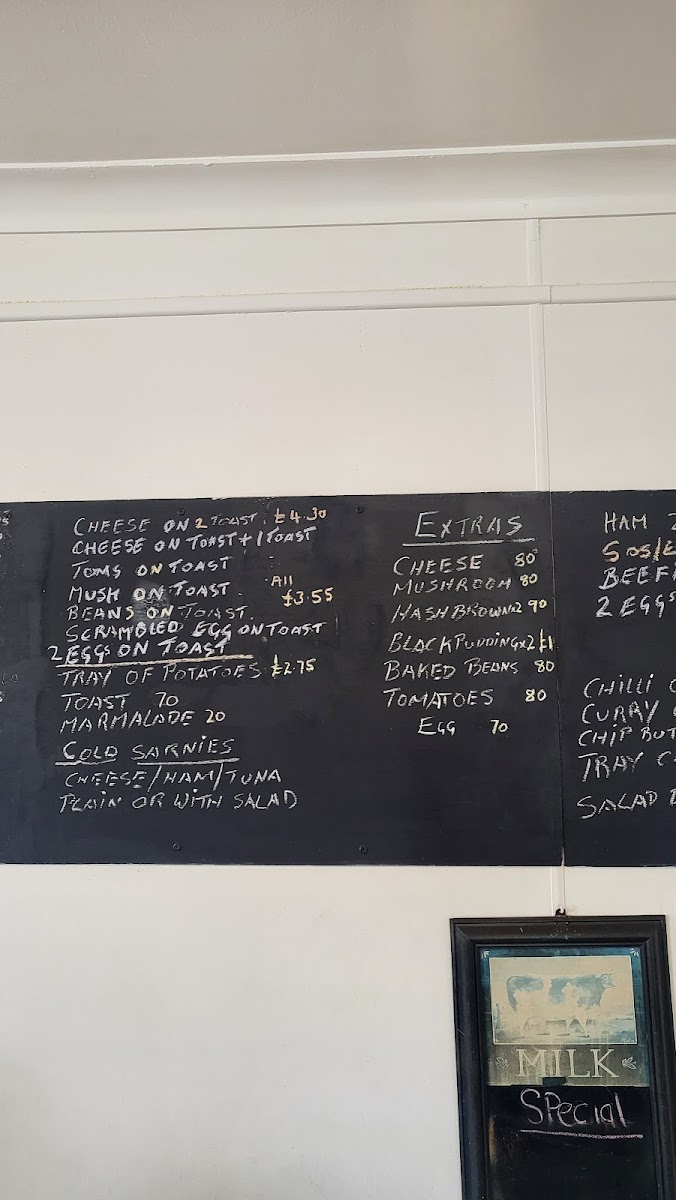 CHEESE ON 2 TOAST £4.30
CHEESE ON TOAST + 1 TOAST
TOMS ON TOAST
MUSH ON TOAST All
BEANS ON TOAST £3.55
SCRAMBLED EGG ON TOAST
2 EGGS ON TOAST
TRAY OF POTATOES £2.75
TOAST 70
MARMALADE 20
COLD SARNIES
CHEESE/HAM/TUNA
PLAIN OR WITH SALAD
EXTRAS
CHEESE 80
MUSHROOM 80
HASH BROWNx2 90
BLACK PUDDINGx2 £1
BAKED BEANS 80
TOMATOES 80
EGG 70
HAM
SOS/E
BEEF
2 EGGS
CHILLI
CURRY
CHIP BUT
TRAY
SALAD
MILK
SPecial